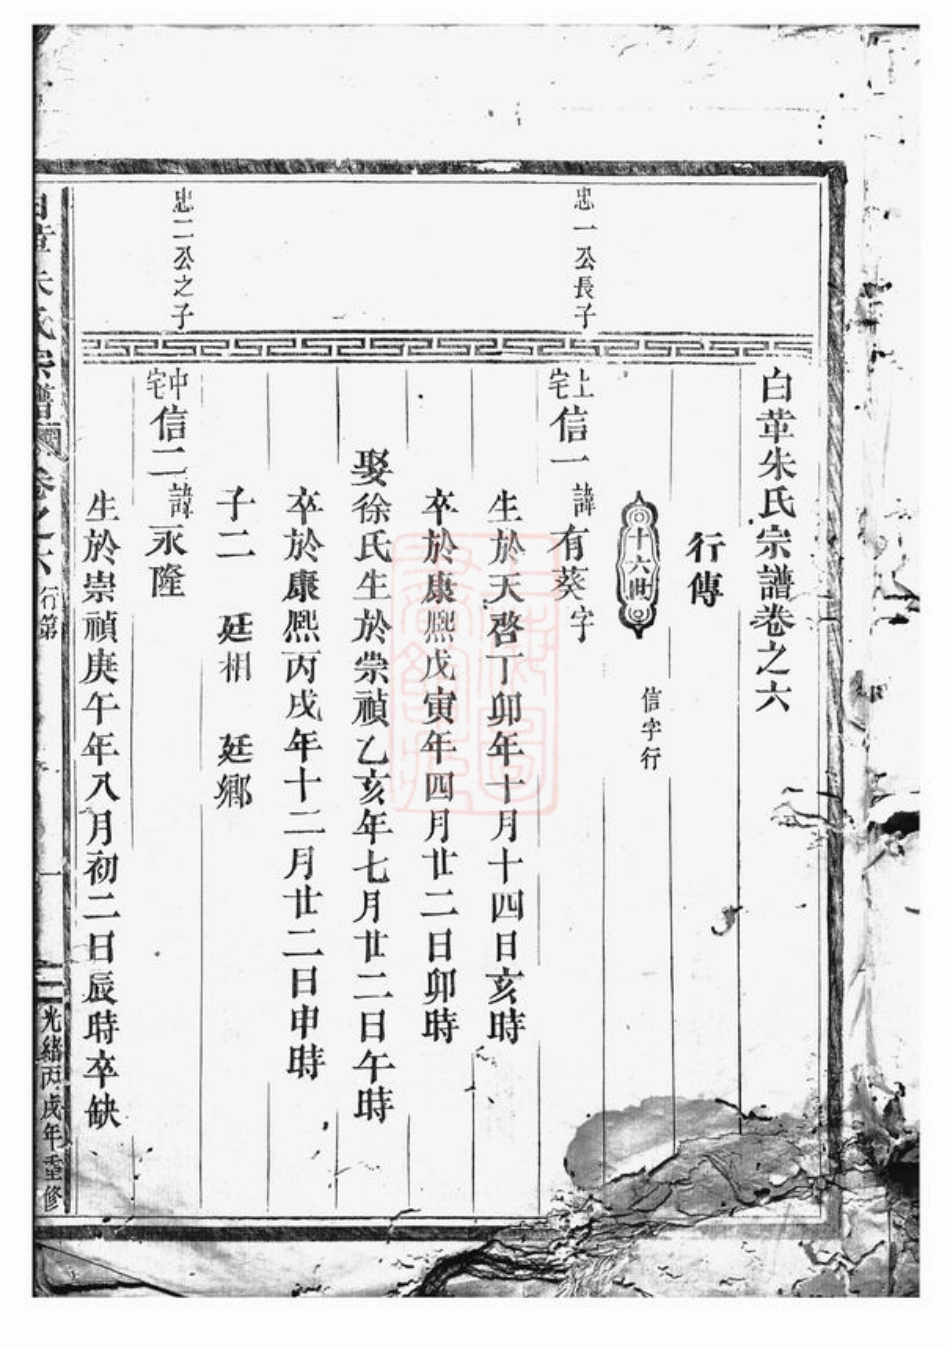 白苹朱氏宗譜卷之六
行傳
十六世
信字行
忠一公長子
上宅信一諱有葵字
生於天啓丁卯年十月十四日亥時
卒於康熙戊寅年四月廿二日卯時
娶徐氏生於崇禎乙亥年七月廿二日午時
卒於康熙丙戌年十二月廿二日申時
子二 廷相 廷鄉
忠二公之子
中宅信二諱永隆
生於崇禎庚午年八月初二日辰時卒缺
朱氏宗譜 卷之六 行第 一
光緒丙戌年重修